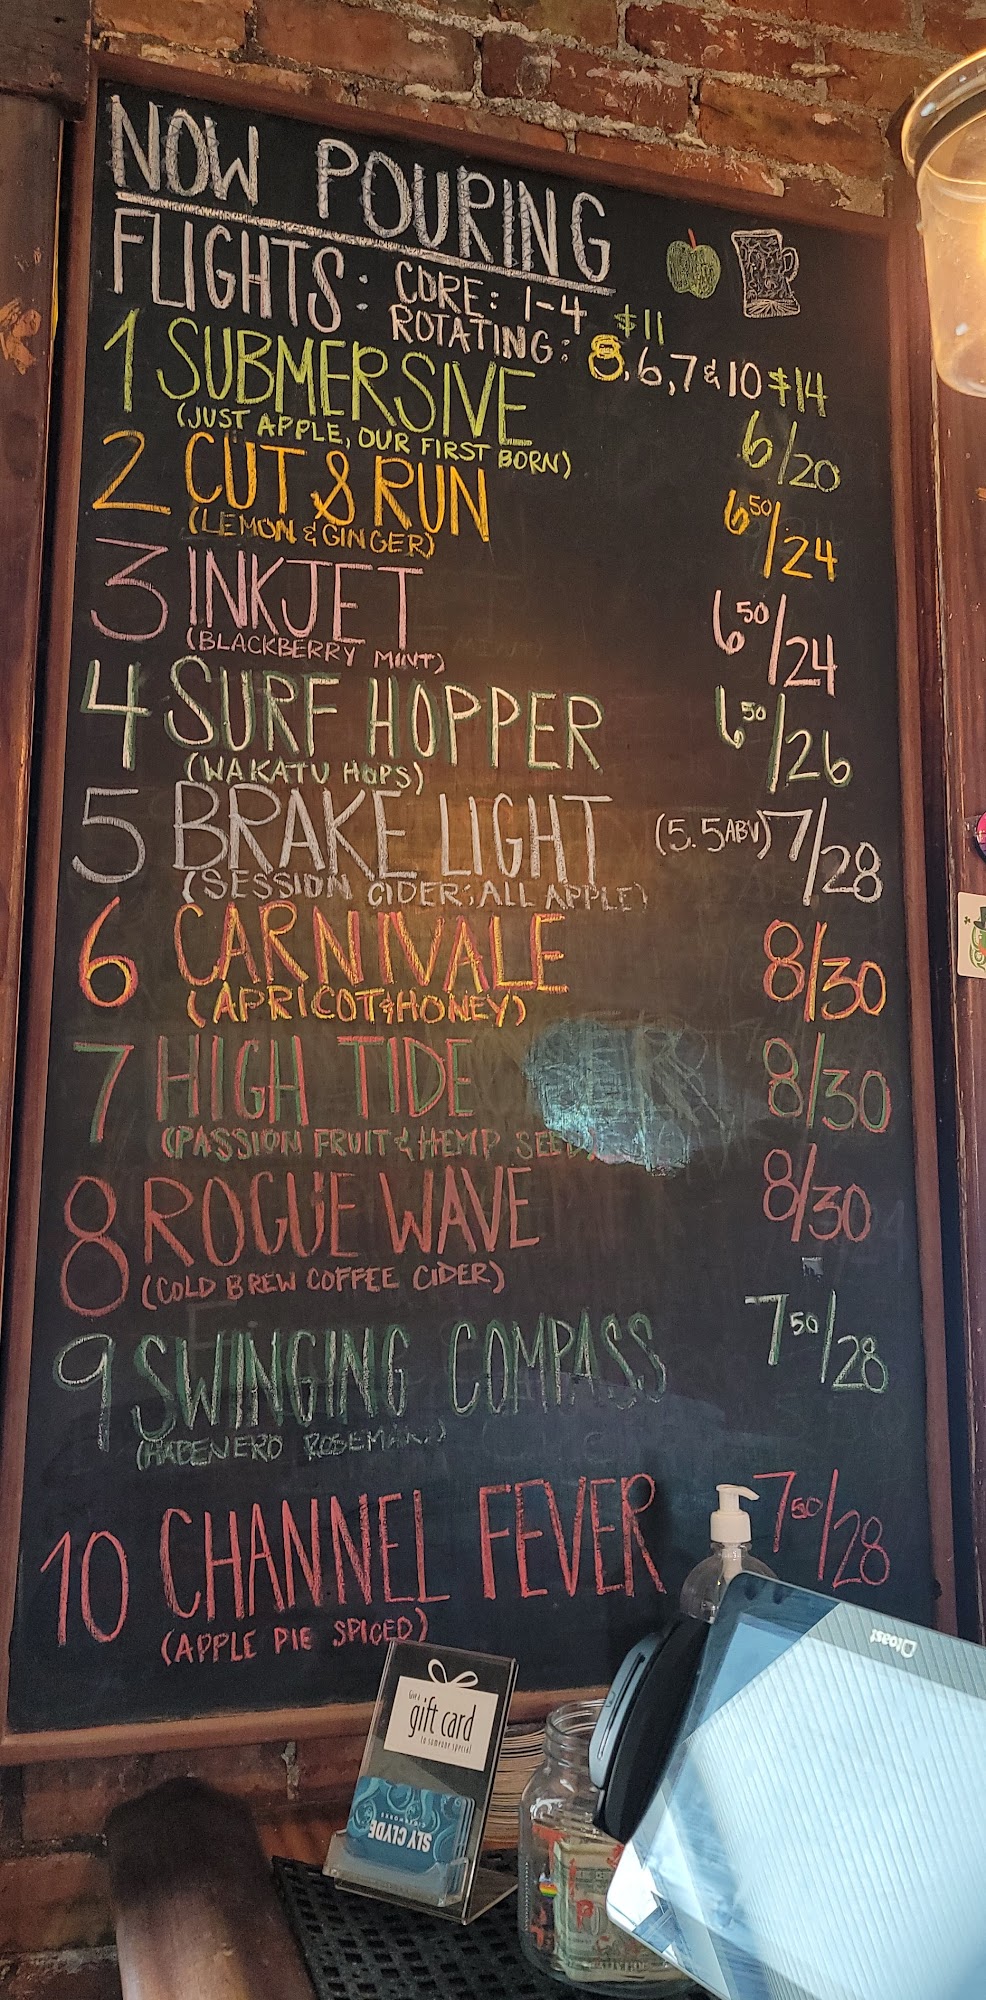 NOW POURING
FLIGHTS: CORE: 1-4 $11
ROTATING: 8, 6, 7 & 10 $14
1 SUBMERSIVE 6/20
(JUST APPLE, OUR FIRST BORN)
2 CUT & RUN 650/24
(LEMON & GINGER)
3 INKJET 650/24
(BLACKBERRY MINT)
4 SURF HOPPER 650/26
(WAKATU HOPS)
5 BRAKE LIGHT (5.5ABV) 7/28
(SESSION CIDER; ALL APPLE)
6 CARNIVALE 8/30
(APRICOT & HONEY)
7 HIGH TIDE 8/30
(PASSION FRUIT & HEMP SEED)
8 ROGUE WAVE 8/30
(COLD BREW COFFEE CIDER)
9 SWINGING COMPASS 750/28
(HABENERO ROSEMARY)
10 CHANNEL FEVER 750/28
(APPLE PIE SPICED)
toast
Give a
gift card
to someone special
SLY CLYDE
CIDERWORKS